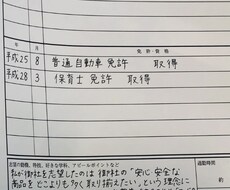 年 月 免許・資格
平成25 8 普通自動車免許 取得
平成28 3 保育士免許 取得
志望の動機、特技、好きな学科、アピールポイントなど 通勤時間
私が御社を志望したのは御社の"安心安全な
商品をどこよりも多く取り揃えたい"という理念に